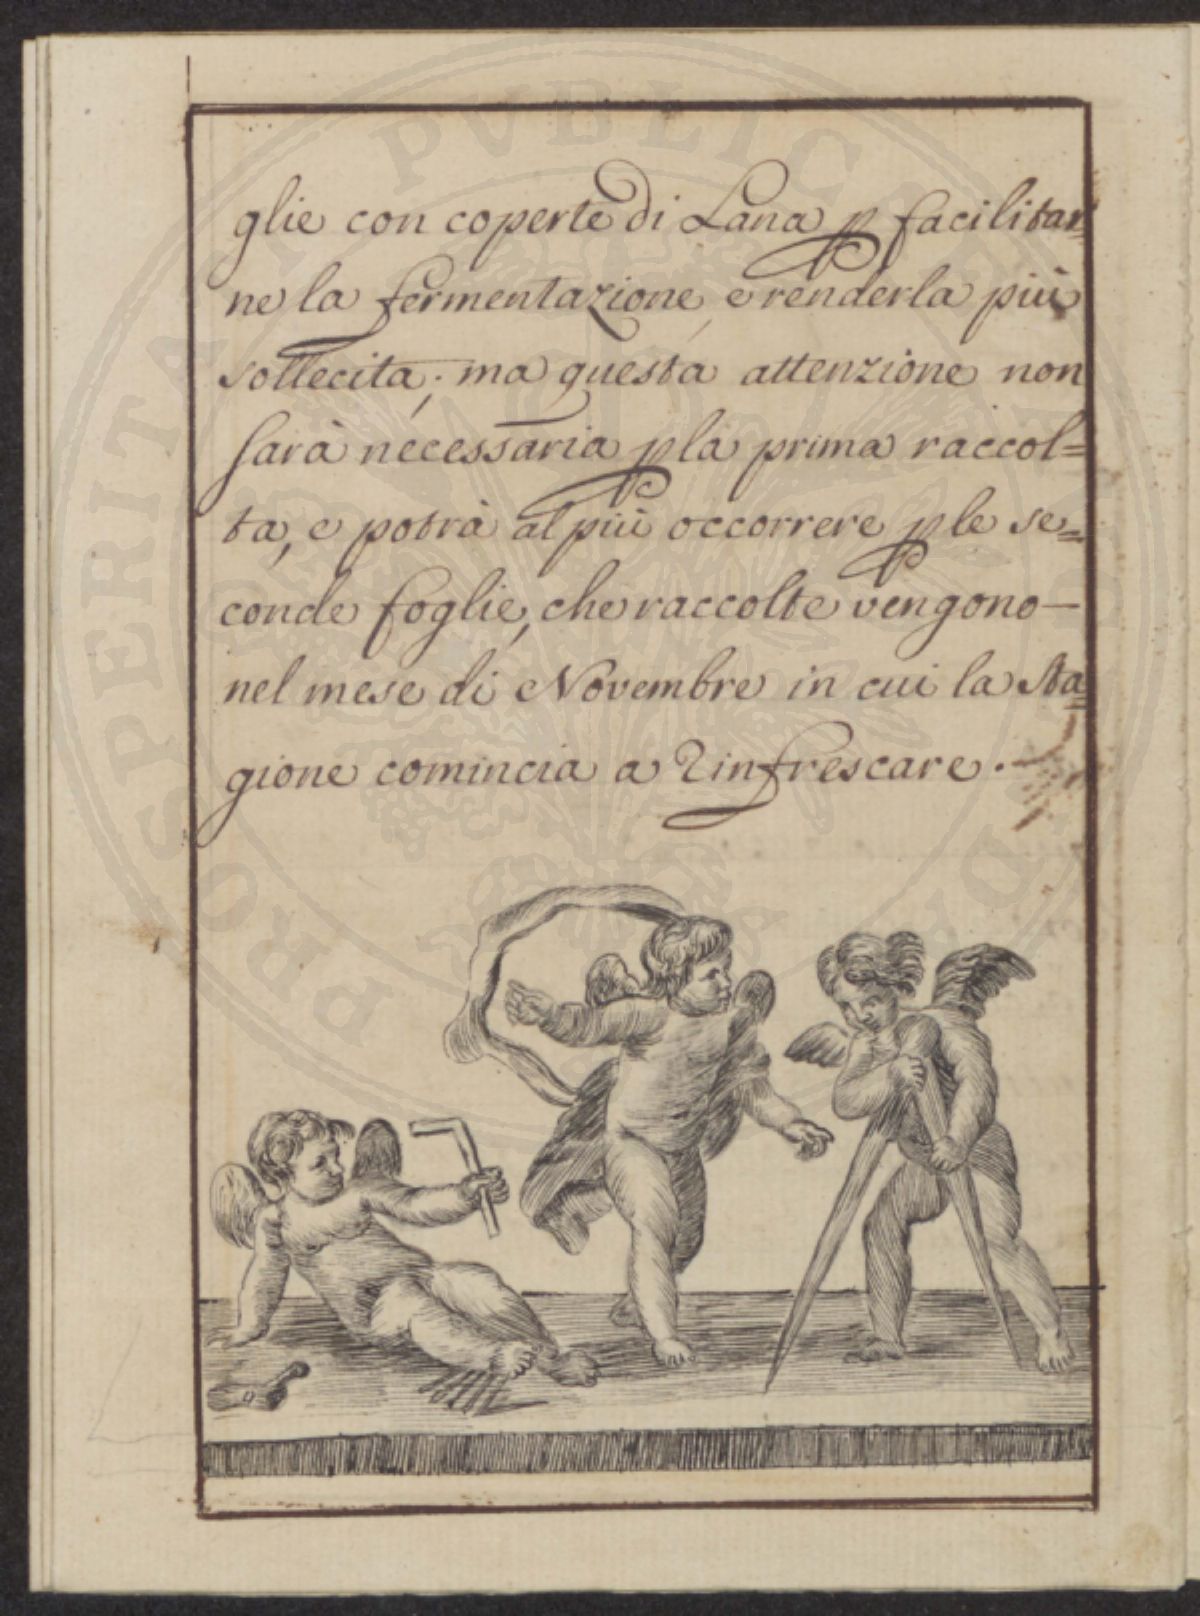 glie con coperte di Lana p facilitar=
ne la fermentazione, e renderla più
sollecita; ma questa attenzione non
sarà necessaria p la prima raccol=
ta, e potrà al più occorrere p le se=
conde foglie, che raccolte vengono—
nel mese di Novembre in cui la sta=
gione comincia a Rinfrescare.
PROSPERITATI PVBLICAE